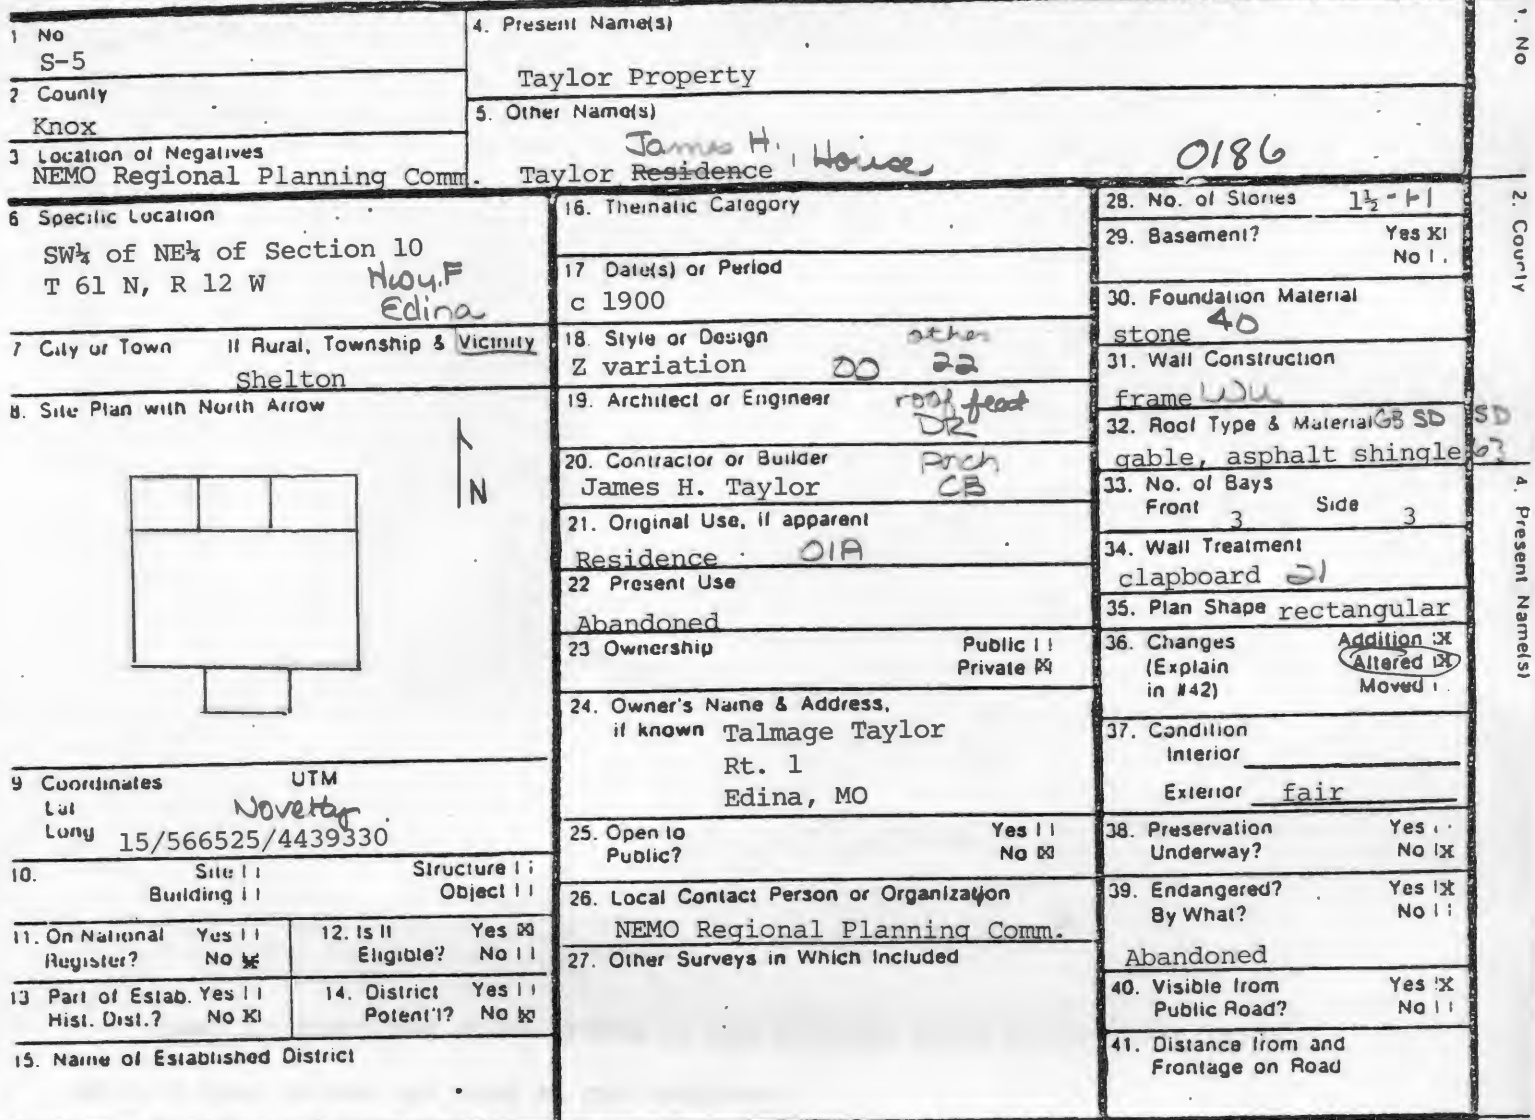 1 No
S-5
2 County
Knox
3 Location of Negatives
NEMO Regional Planning Comm.
4. Present Name(s)
Taylor Property
5. Other Name(s)
James H.
Taylor Residence, House
0186
6 Specific Location
SW¼ of NE¼ of Section 10
T 61 N, R 12 W
Hwy. F
Edina
7 City or Town If Rural, Township & Vicinity
Shelton
8. Site Plan with North Arrow
N
9 Coordinates UTM
Lat
Novelty
Long 15/566525/4439330
10. Site Structure
Building Object
11. On National Yes
Register? No X
12. Is It Yes X
Eligible? No
13 Part of Estab. Yes
Hist. Dist.? No X
14. District Yes
Potent'l? No X
15. Name of Established District
16. Thematic Category
17 Date(s) or Period
c 1900
18. Style or Design other
Z variation 00 22
19. Architect or Engineer roof feat
DR
20. Contractor or Builder Prch
James H. Taylor CB
21. Original Use, if apparent
Residence 01A
22 Present Use
Abandoned
23 Ownership Public
Private X
24. Owner's Name & Address,
if known Talmage Taylor
Rt. 1
Edina, MO
25. Open to Yes
Public? No X
26. Local Contact Person or Organization
NEMO Regional Planning Comm.
27. Other Surveys in Which Included
28. No. of Stories 1½
29. Basement? Yes X
No
30. Foundation Material
stone 40
31. Wall Construction
frame WU
32. Roof Type & Material GB SD SD
gable, asphalt shingle 63
33. No. of Bays
Front 3 Side 3
34. Wall Treatment
clapboard 21
35. Plan Shape rectangular
36. Changes Addition X
(Explain Altered X
in #42) Moved
37. Condition
Interior
Exterior fair
38. Preservation Yes
Underway? No X
39. Endangered? Yes X
By What? No
Abandoned
40. Visible from Yes X
Public Road? No
41. Distance from and
Frontage on Road
1. No
2. County
4. Present Name(s)